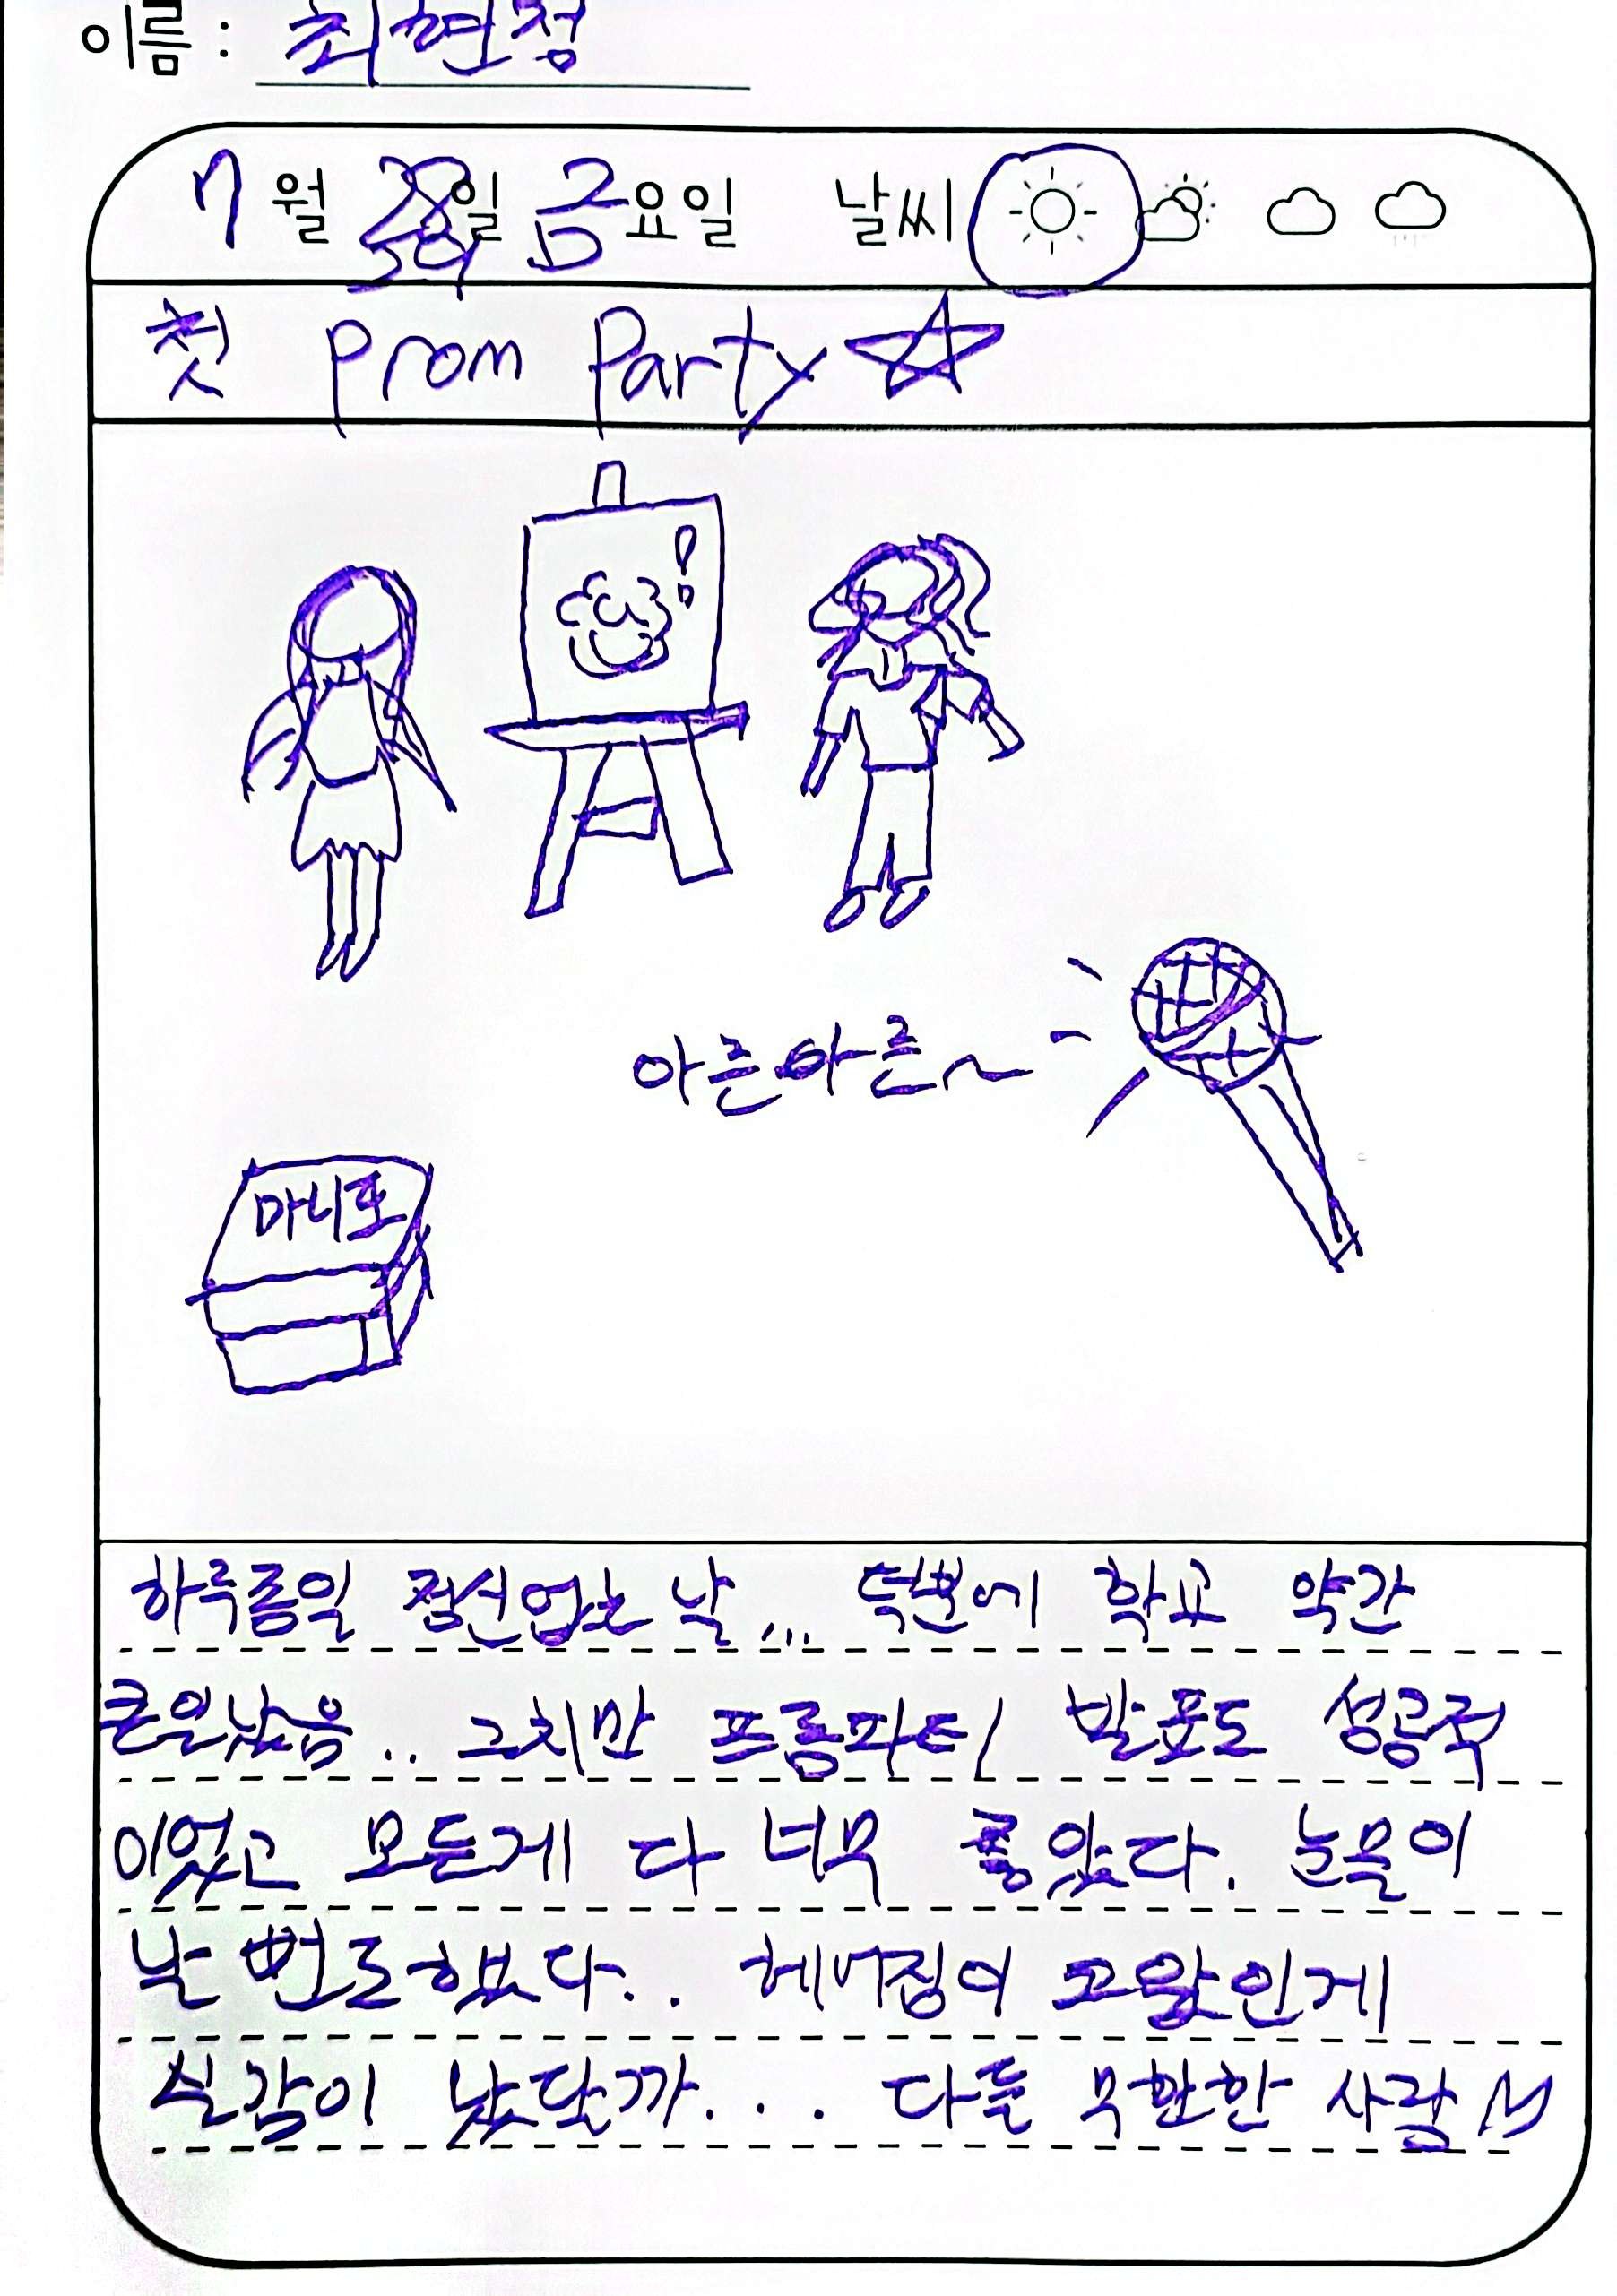 이름 : 최현정
7월 일 금요일 날씨
첫 Prom Party
!
아른아른~
마니또
하루종일 정신없는 날... 덕분에 학교 약간
큰일났음.. 그치만 프롬파티 발표도 성공적
이었고 모든게 다 너무 좋았다. 눈물이
날 뻔도했다.. 헤어짐이 코앞인게
실감이 났달까... 다들 무한한 사랑